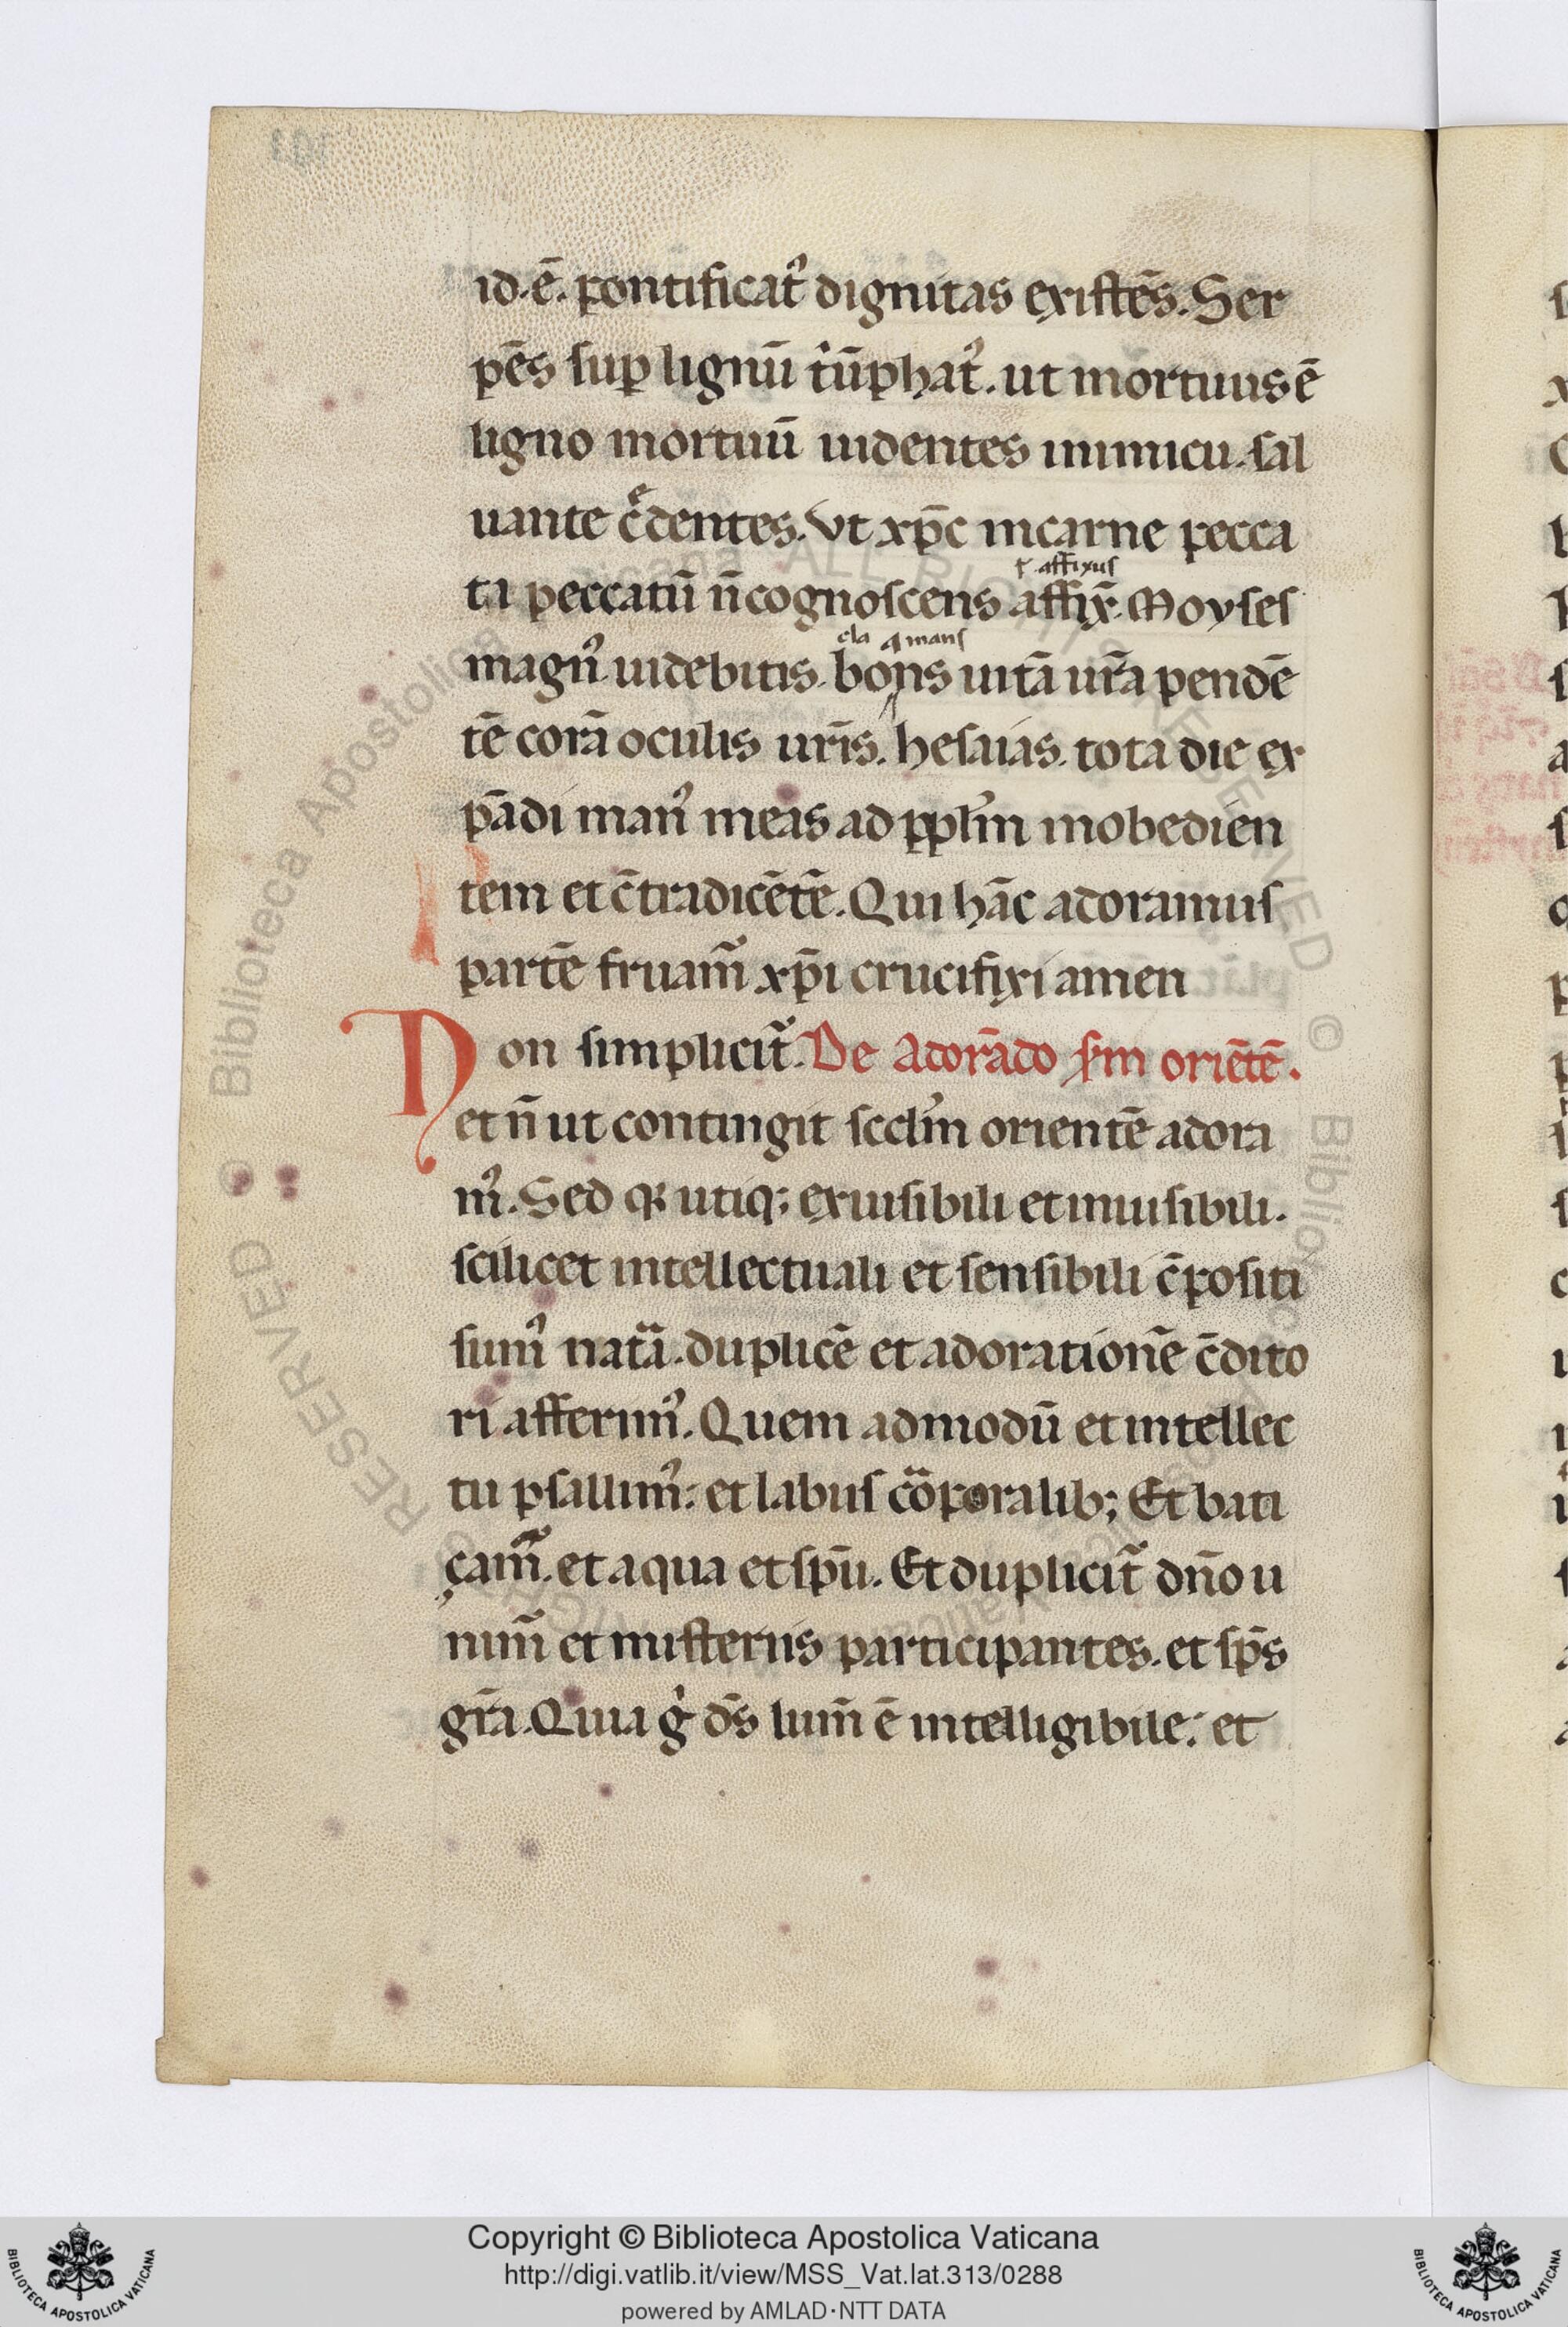 id·ē· pontificat᷒ dignitas existēs. Ser
pēs sup lignū t͛ūphat᷒. ut mortuus ē
ligno mortuū uidentes inimicu. sal
uante c͛edentes. Vt xp̄c in carne pecca
r affixus
ti peccatū n̄ cognoscens affix̄. Moyses
cla amans
magn᷒ uidebitis. bons uitā ur̄a pendē
tē corā oculis ur̄is. hesaias. tota die ex
pādi man᷒ meas ad ppl̄m inobedien
tem et c̄tradicētē. Qui hāc adoramus
partē fruam᷒ xp̄i crucifixi amen
Non simplicit͛. De Adorādo sm̄ oriētē.
et n̄ ut contingit scdm̄ orientē adora
m᷒. Sed q; utiq; ex uisibili et inuisibili.
scilicet intellectuali et sensibili c̄positi
sum᷒ natͣa. duplicē et adorationē c̄dito
ri afferim᷒. Quem admodū et intellec
tu psallim᷒: et labus cͦoporalib; Et bati
çam᷒. et aqua et sp̄u. Et duplicit͛ dn̄o u
nim᷒ et misteriis participantes. et sp̄s
gr̄a. Quia g̊ ds̄ lum̄ ē intelligibile: et
Copyright © Biblioteca Apostolica Vaticana
http://digi.vatlib.it/view/MSS_Vat.lat.313/0288
powered by AMLAD·NTT DATA
BIBLIOTECA APOSTOLICA VATICANA
BIBLIOTECA APOSTOLICA VATICANA